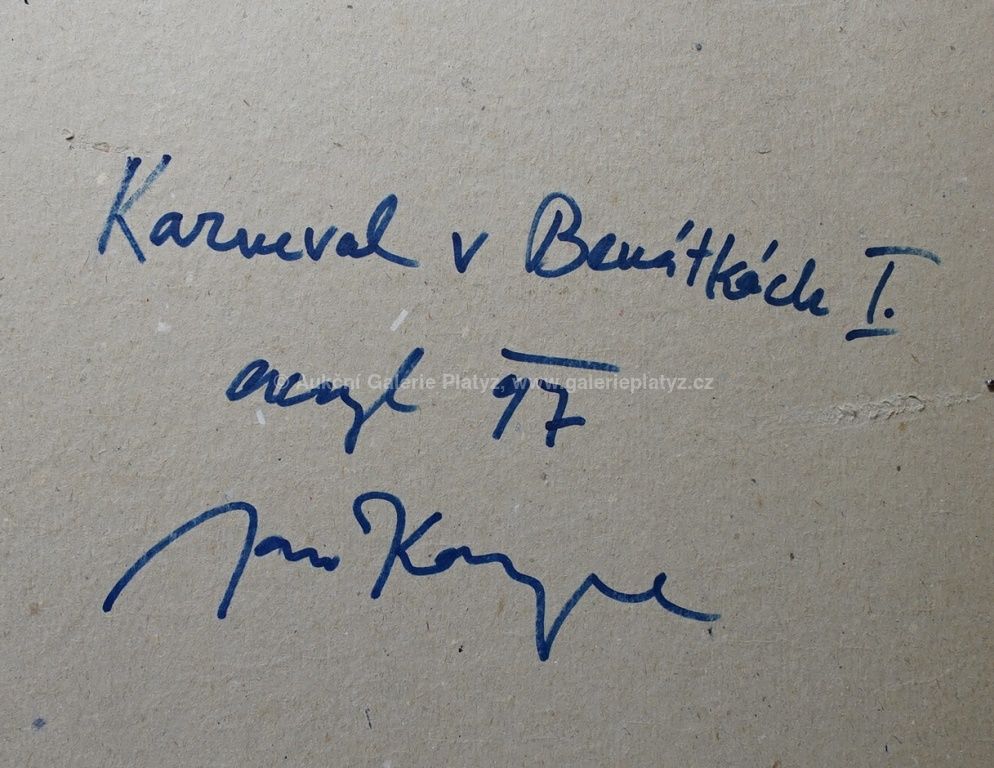 Karneval v Benátkách I.
© Aukční Galerie Platyz, www.galerieplatyz.cz
akryl 97
Jan